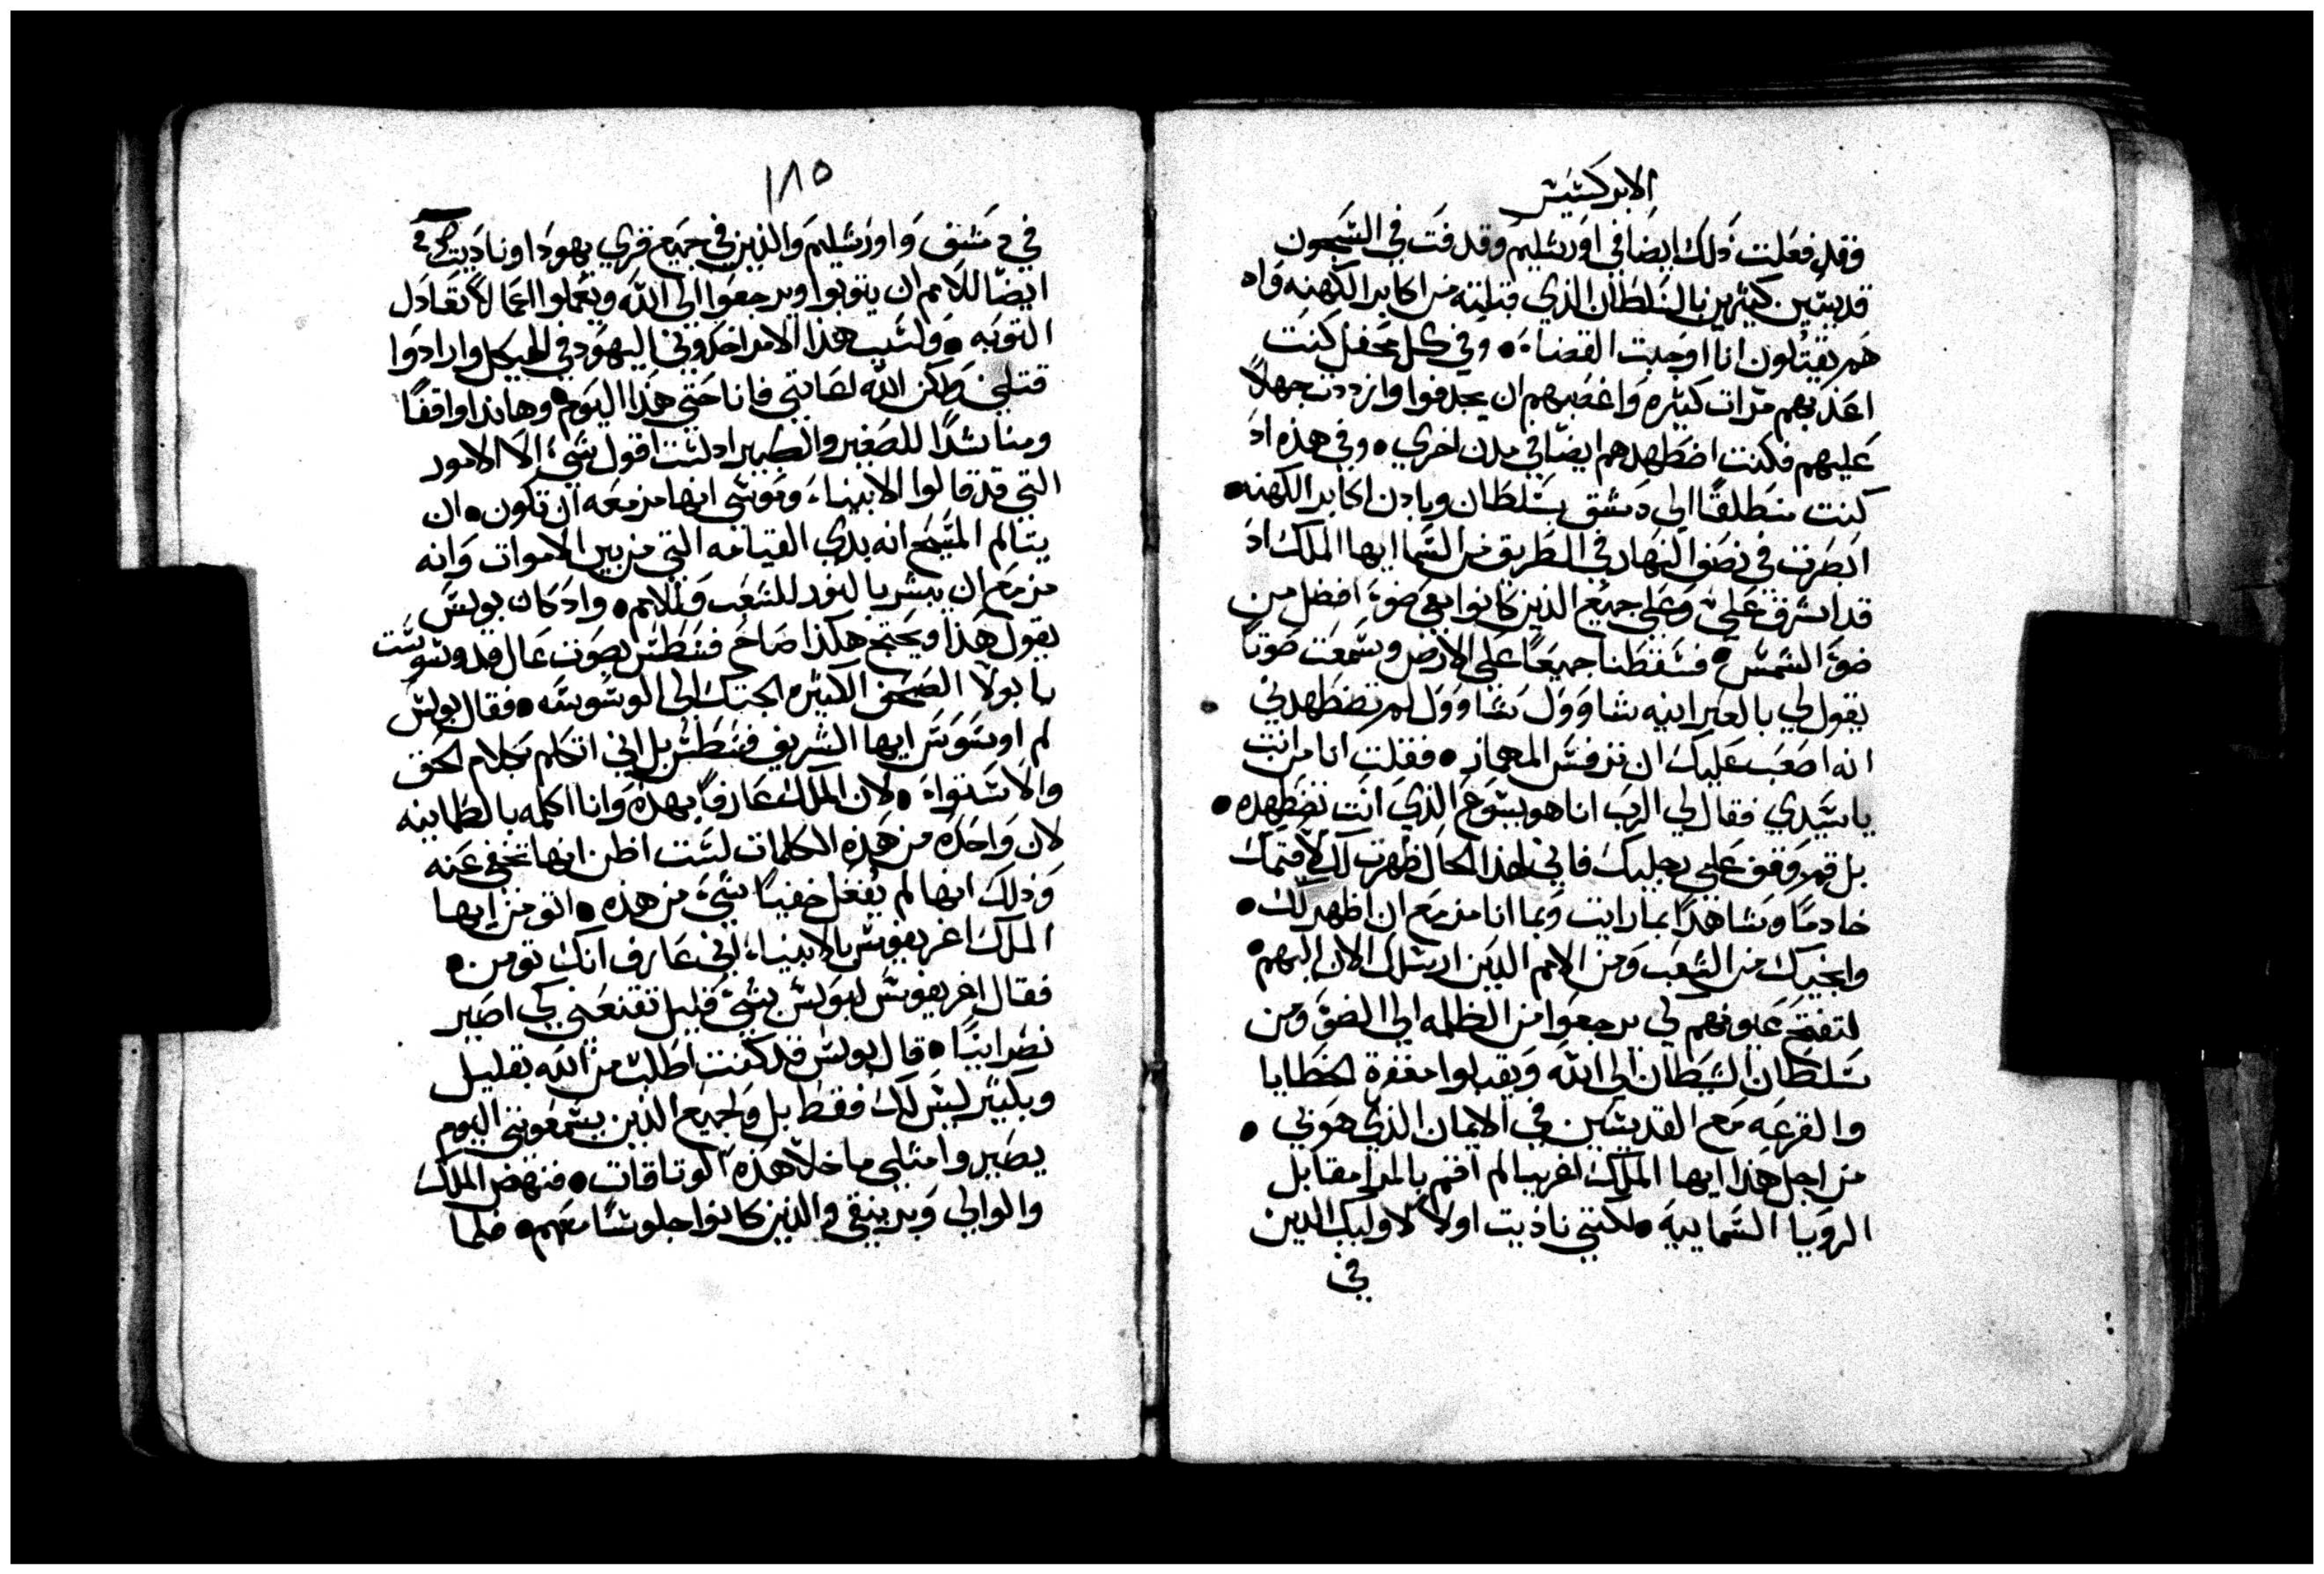 الابركسيس
فقد فعلت ذلك ايضا في اورشليم وقد قدفت في السجون
قديسين كثيرين بالسلطان الذي قبلته من اكابر الكهنه واد
هم يقتلون انا اوجبت القضاء • وفي كل محفل كنت
اعذبهم مرات كثيره واغصبهم ان يجدفوا وازددت جهلاً
عليهم فكنت اضطهدهم ايضا في مدن اخري • وفي هذه اد
كنت منطلقا الي دمشق بسلطان وبادن اكابر الكهنه •
ابصرت في نصف النهار في الطريق من السما ايها الملك اد
قد اشرق علي وعلي جميع الذين كانوا معي ضوء افضل من
ضوء الشمس • فسقطنا جميعا علي الارض وسمعت صوتا
يقول لي بالعبرانيه شاوول شاوول لم تضطهدني
انه اصعب عليك ان ترفس المهماز • فقلت انا من انت
يا سيدي فقال لي الرب انا هو يسوع الذي انت تضطهده •
بل قم وقف علي رجليك فاني لهذا الحال ظهرت لك لاقيمك
خادما وشاهدا بما رايت وبما انا مزمع ان اظهر لك •
وانجيك من الشعب ومن الامم الذين ارسلك الان اليهم •
لتفتح عيونهم لي يرجعوا من الظلمه الي الضو ومن
سلطان الشيطان الي الله ويقبلوا مغفرة الخطايا
والقرعه مع القديسين في الايمان الذي هو بي •
من اجل هذا ايها الملك اغريبا لم اقم بالمرا مقابل
الرويا السماييه • لكنني ناديت اولا لاوليك الذين
في
١٨٥
في دمشق واورشليم والذين في جميع قري يهودا وناديت
ايضا للامم ان يتوبوا ويرجعوا الي الله ويعملوا اعمالا تعادل
التوبه • ولسبب هذا الامر اخذوني اليهود في الهيكل وارادوا
قتلي • لكن الله اعانني فانا حتي هذا اليوم وهانذا واقفا
ومناشدا للصغير والكبير اد لست اقول شي الا الامور
التي قد قالوا الانبياء وموسي انها مزمعه ان تكون • ان
يتالم المسيح انه بدي القيامه التي من بين الاموات وانه
مزمع ان يبشر بالنور للشعب وللامم • واد كان بولس
يقول هذا ويحتج هكذا صاح فسطس بصوت عال قد وسوست
يا بولا الصحف الكثيره الجتك الي الوسوسه • فقال بولس
لم اوسوس ايها الشريف فسطس بل اني اتكلم بكلام الحق
والاستواء • لان الملك عارفا بهده وانا اكلمه بالطمانينه
لان واحده من هذه الكلمات لست اظن انها تخفي عنه
وذلك انها لم يفعل خفيا شي من هذه • اتومن ايها
الملك اغريفوس بالانبياء اني عارف انك تومن •
فقال اغريفوس لبولس بشي قليل تقنعني كي اصير
نصرانيا • قال بولس قد كنت اطلب من الله بقليل
وبكثير ليس لك فقط بل ولجميع الذين يسمعونني اليوم
يصيروا مثلي ما خلا هذه الوتاقات • فنهض الملك
والوالي وبرنيقي والذين كانوا جلوسا معهم • فلما